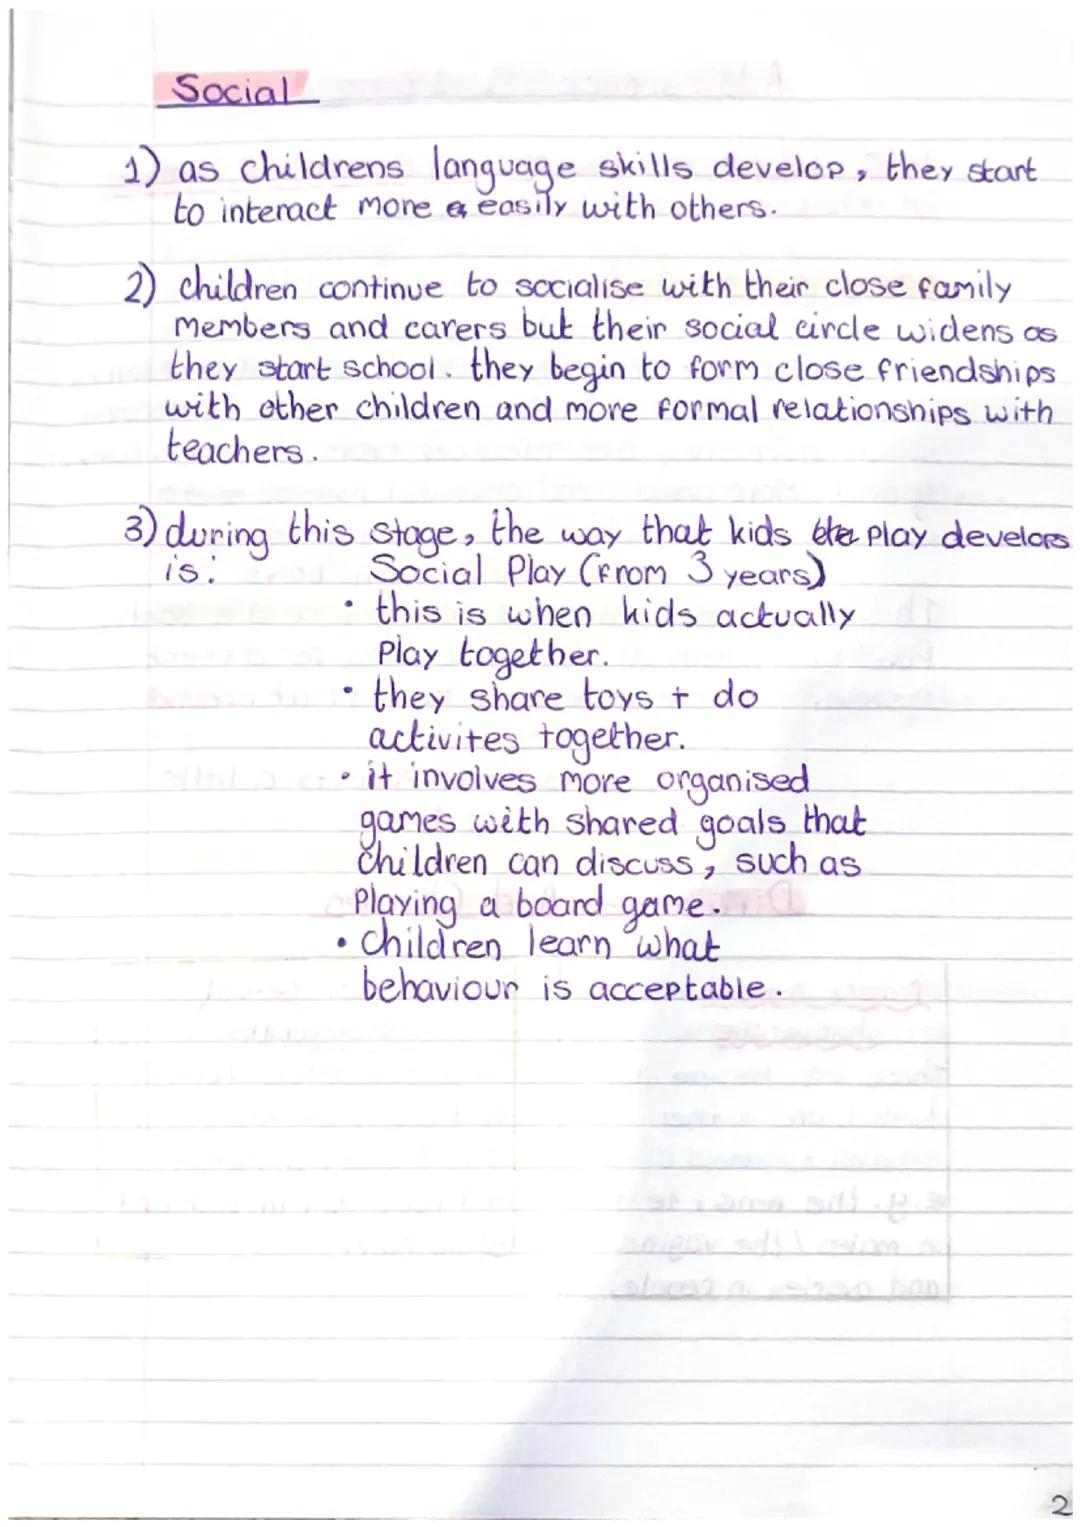 Social
1) as childrens language skills develop, they start
to interact more easily with others.
2) children continue to socialise with their close family
members and carers but their social circle widens as
they start school. they begin to form close friendships
with other children and more formal relationships with
teachers.
3) during this stage, the way that kids play develops
is:
Social Play (from 3 years)
• this is when kids actually
Play together.
• they share toys + do
activites together.
• it involves more organised
games with shared goals that
children can discuss, such as
Playing a board game.
• children learn what
behaviour is acceptable.
2